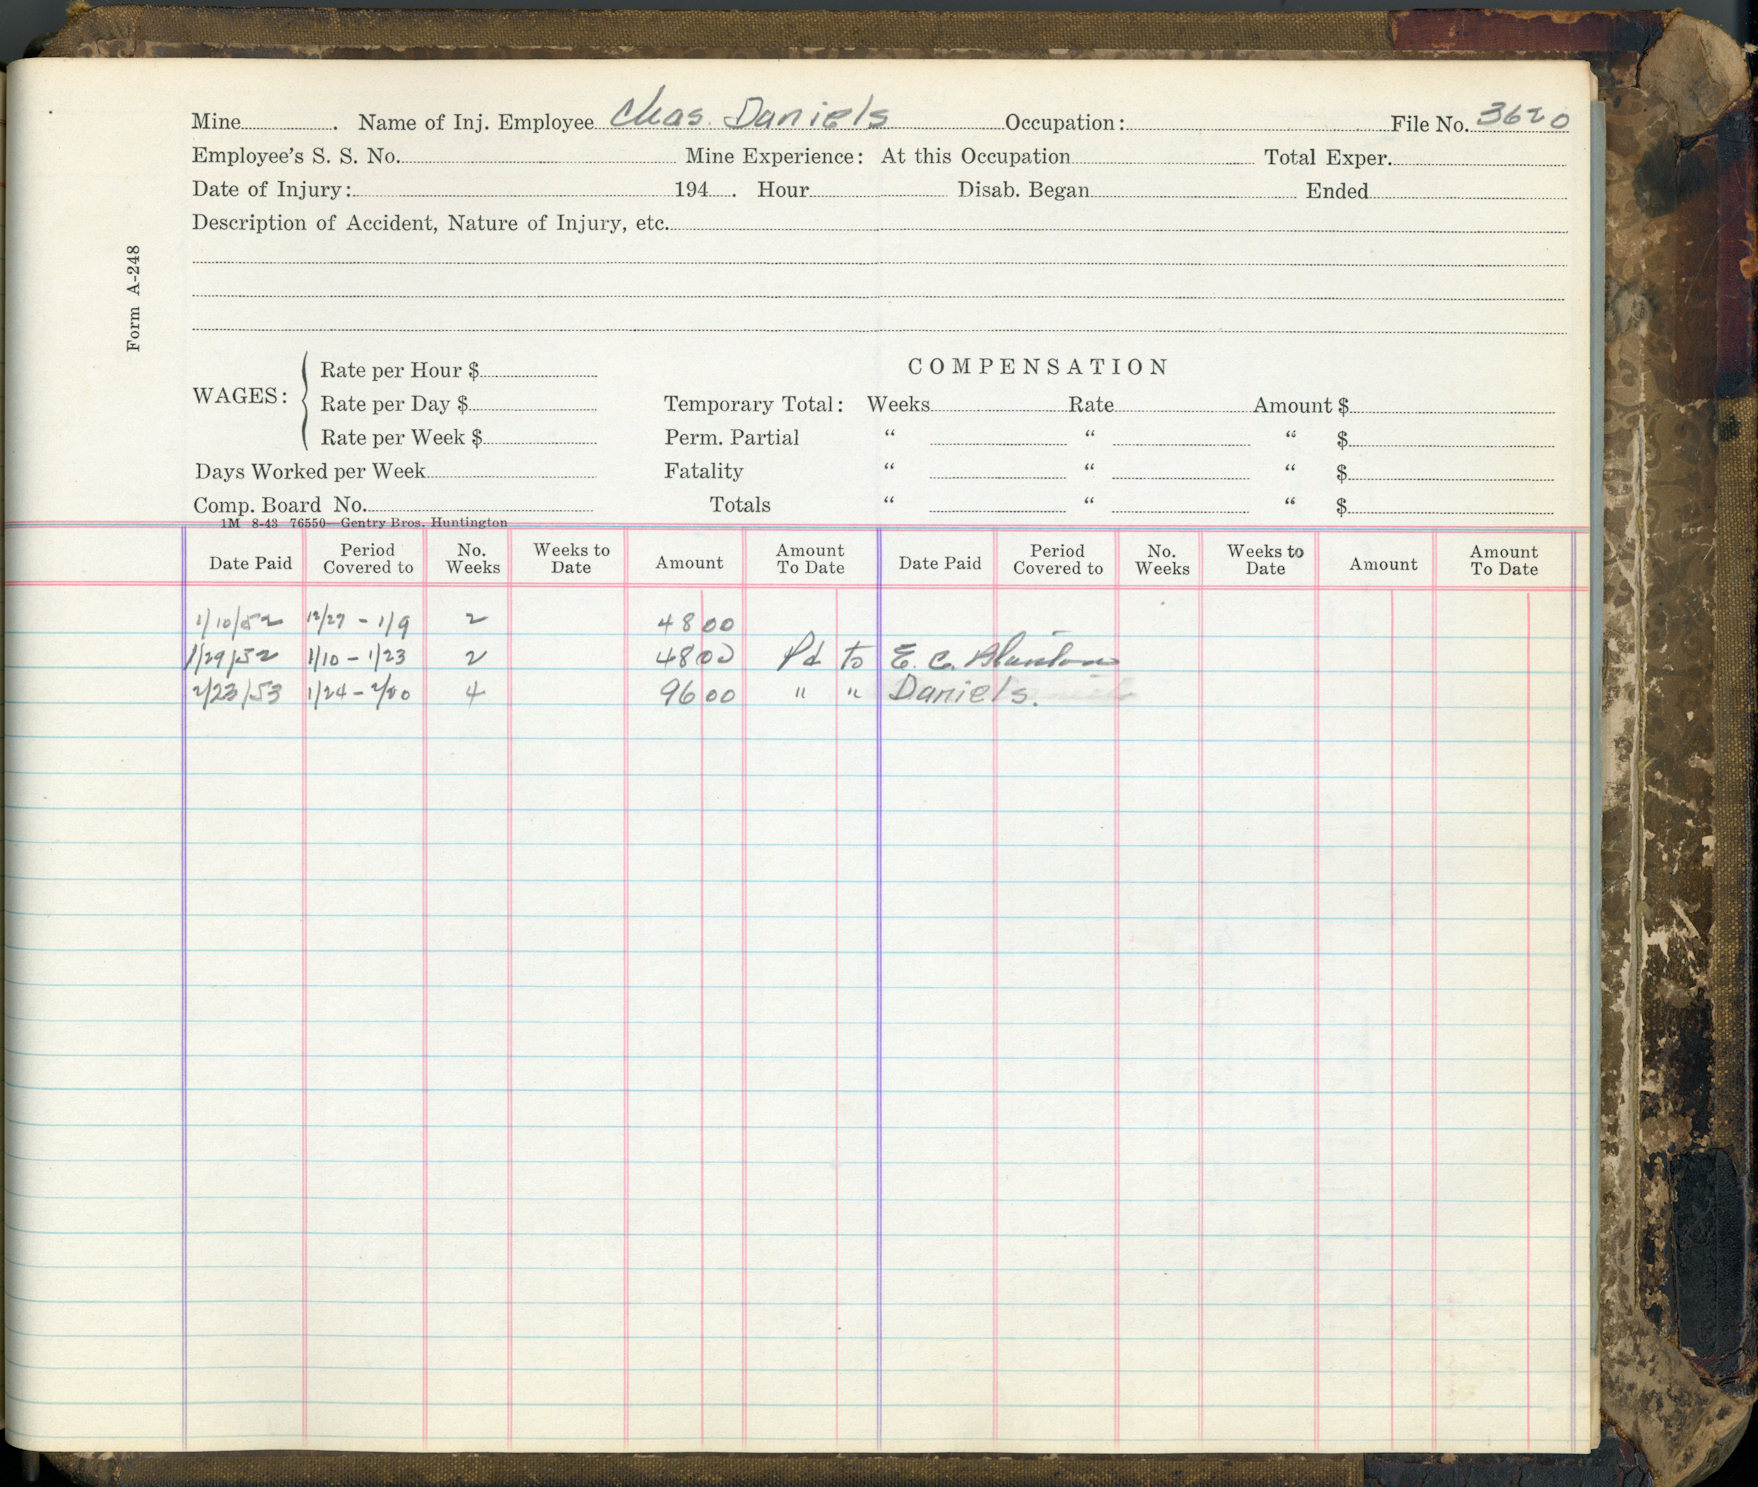 Mine . Name of Inj. Employee Chas. Daniels Occupation: File No. 3620
Employee's S. S. No. Mine Experience: At this Occupation Total Exper.
Date of Injury: 194 . Hour Disab. Began Ended
Description of Accident, Nature of Injury, etc.
Form A-248
COMPENSATION
WAGES: Rate per Hour $
Rate per Day $ Temporary Total: Weeks Rate Amount $
Rate per Week $ Perm. Partial " " " $
Days Worked per Week Fatality " " " $
Comp. Board No. Totals " " " $
1M 8-43 76550—Gentry Bros. Huntington
Date Paid Period Covered to No. Weeks Weeks to Date Amount Amount To Date Date Paid Period Covered to No. Weeks Weeks to Date Amount Amount To Date
1/10/52 12/27 - 1/9 2 48 00
1/29/52 1/10 - 1/23 2 48 00 Pd to E. C.
2/23/53 1/24 - 2/20 4 96 00 " " Daniels.